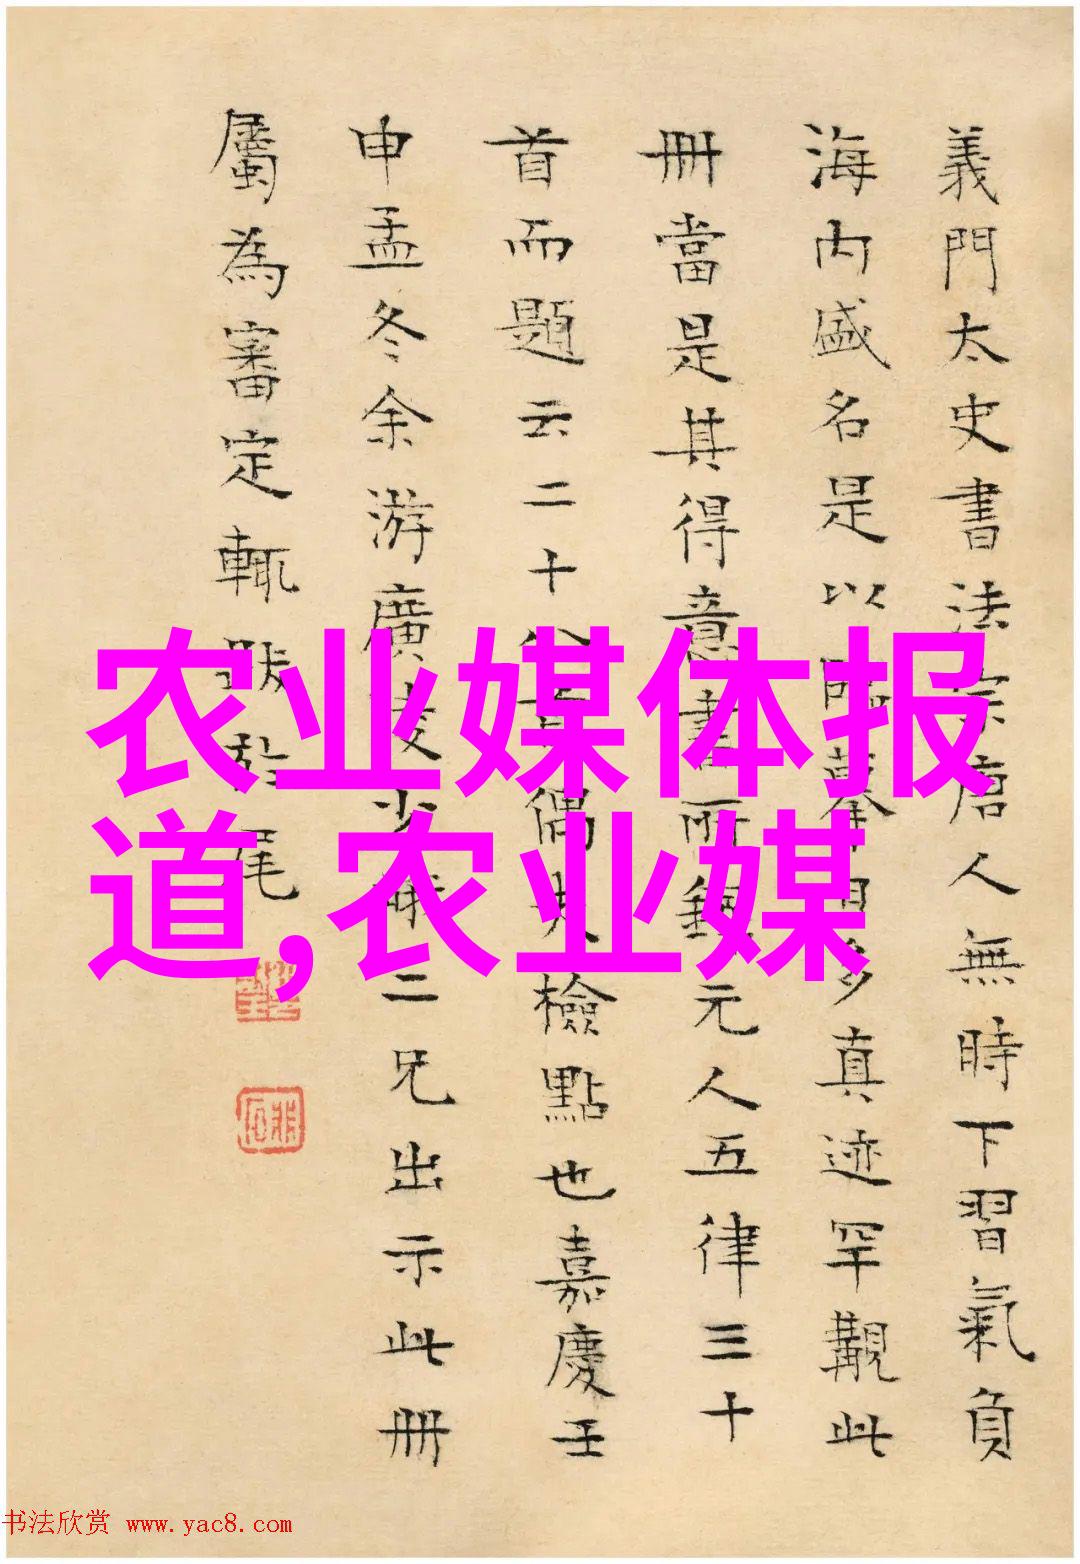 義門太史書法宗唐人無時下習氣負
海内盛名是以臨摹者多真迹罕覯此
冊當是其得意書所錄元人五律三十
首而題云二十八首偶失檢點也嘉慶壬
申孟冬余游廣陵少二兄出示此冊
屬為審定輒跋於尾
农业媒体报
道,农业媒
书法欣赏 www.yac8.com